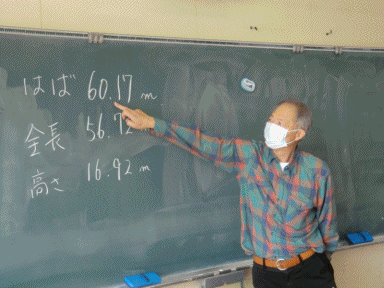 はば 60.17 m
全長 56.72
高さ 16.92 m